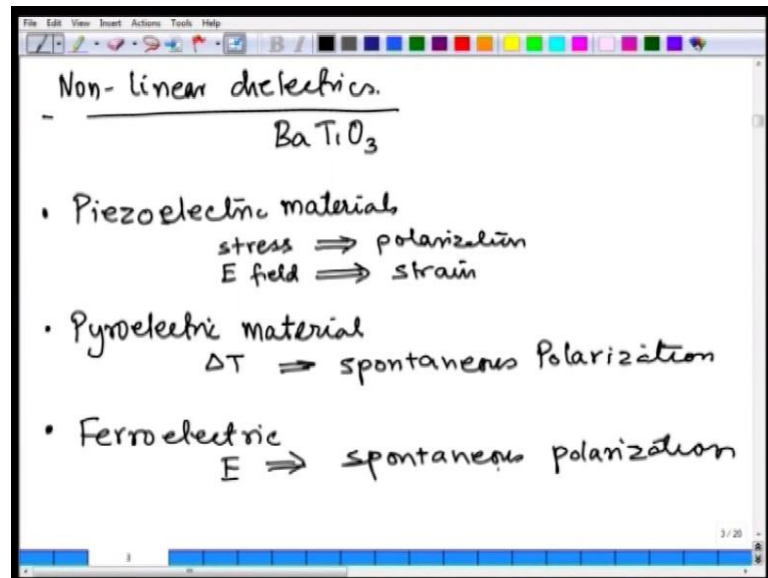 File Edit View Insert Actions Tools Help
B I
Non-linear dielectrics.
- BaTiO3
• Piezoelectric materials
stress ⇒ polarization
E field ⇒ strain
• Pyroelectric material
ΔT ⇒ spontaneous Polarization
• Ferroelectric
E ⇒ spontaneous polarization
3/20
3